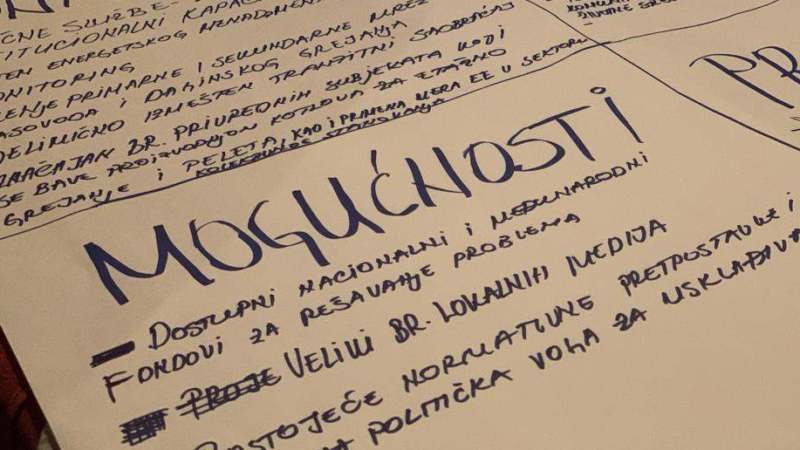 ČNE SLUŽBE-
TITUCIONALNI KAPAC
TEM ENERGETSKOG MENADŽMEN
MONITORING
ŠENJE PRIMARNE I SEKUNDARNE MREŽ
ASOVODA I DALJINSKOG GREJANJA
DELIMIČNO IZMEŠTEN TRANZITNI SAOBRAĆAJ
ZNAČAJAN BR. PRIVREDNIH SUBJEKATA KOJI
SE BAVE PROIZVODNJOM KOTLOVA ZA ETAŽNO
GREJANJE I PELETA, KAO I PRIMENA MERA EE U SEKTORU
KOLEKTIVNOG STANOVANJA
ŽIVOTNE SRE
PR
MOGUĆNOSTI
- DOSTUPNI NACIONALNI I MEĐUNARODNI
FONDOVI ZA REŠAVANJE PROBLEMA
PROJE VELIKI BR. LOKALNIH MEDIJA
POSTOJEĆE NORMATIVNE PRETPOSTAVKE I
POLITIČKA VOLJA ZA USKLAĐIVA